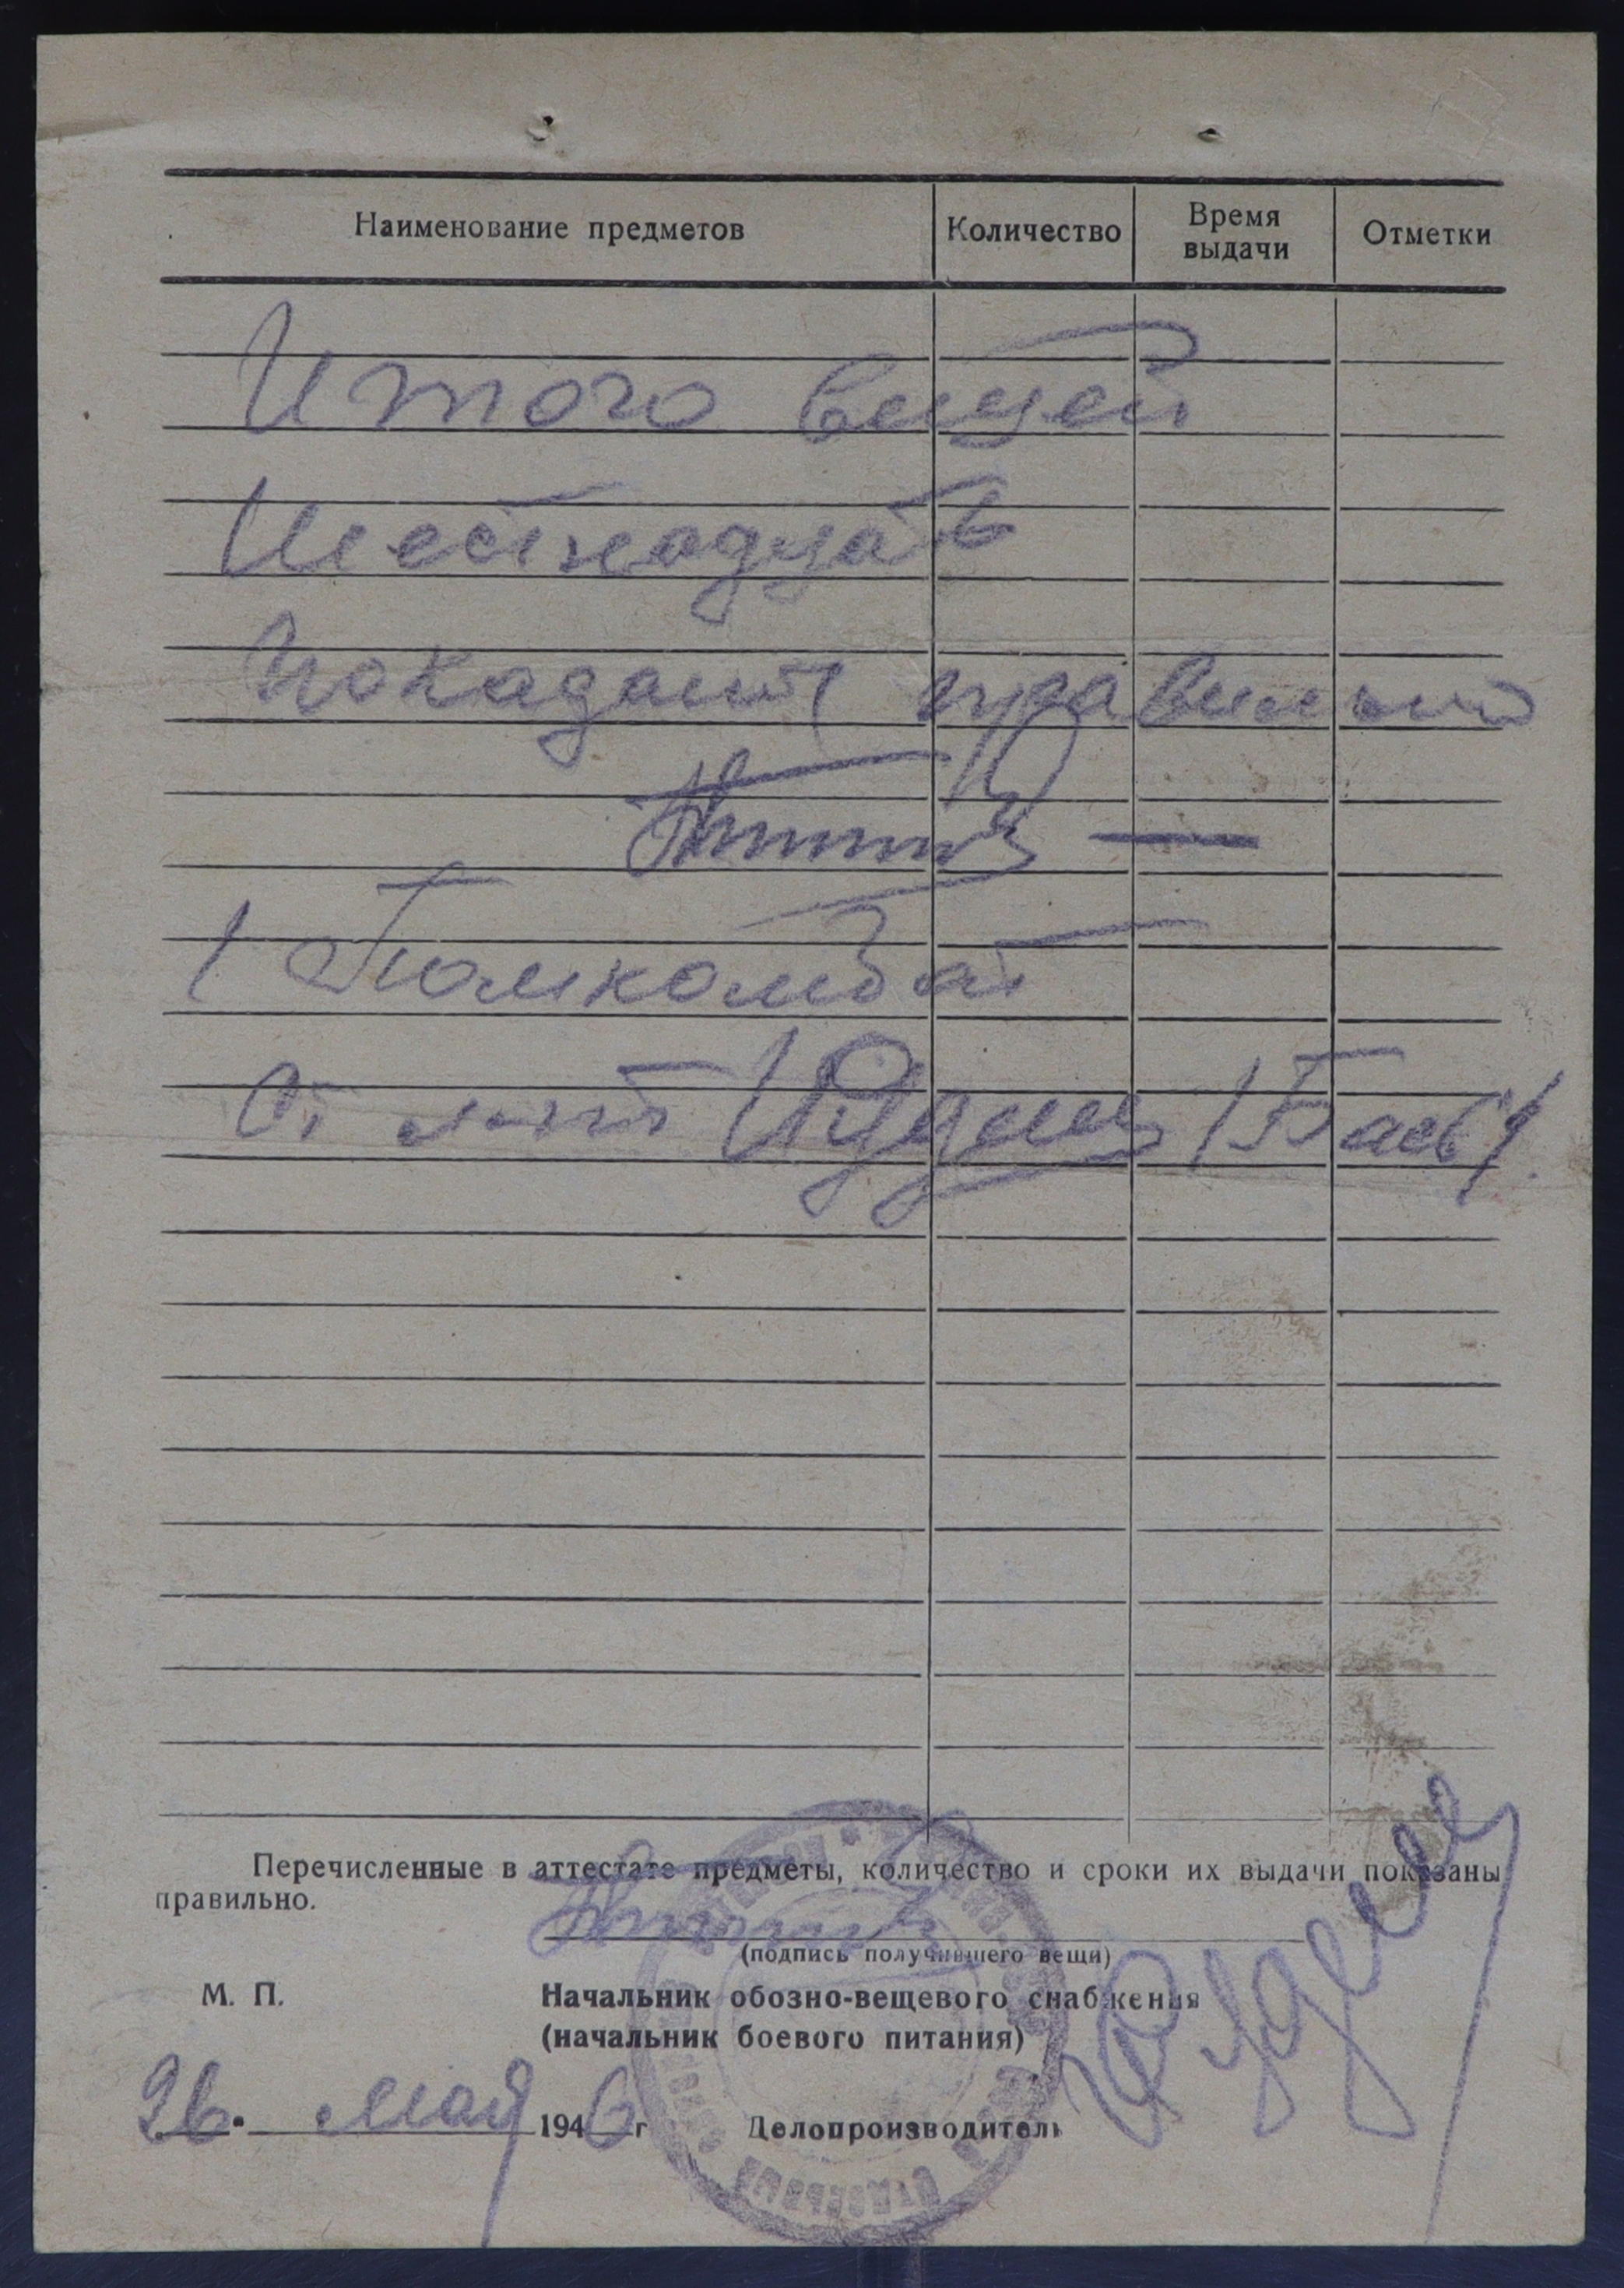 Наименование предметов Количество Время выдачи Отметки
Итого вещей
Шестнадцать
Показаны правильно
Помкомбат
Ст л-нт
Перечисленные в аттестате предметы, количество и сроки их выдачи показаны
правильно.
(подпись получившего вещи)
М. П. Начальник обозно-вещевого снабжения
(начальник боевого питания)
26. мая 1946 г Делопроизводитель